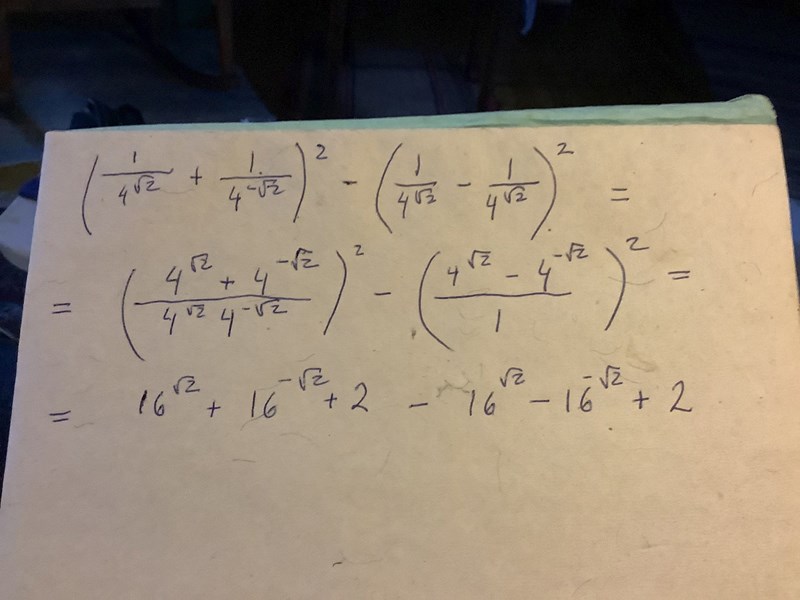 (1/4^√2 + 1/4^-√2)^2 - (1/4^√2 - 1/4^√2)^2 =
= ((4^√2 + 4^-√2)/(4^√2 4^-√2))^2 - ((4^√2 - 4^-√2)/1)^2 =
= 16^√2 + 16^-√2 + 2 - 16^√2 - 16^-√2 + 2